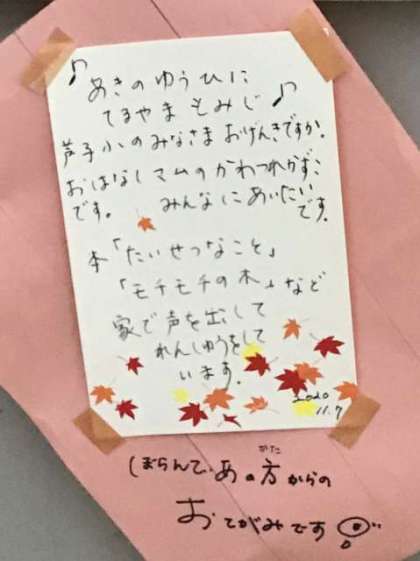 ♪ あきのゆうひに
てるやま もみじ ♪
芦子小のみなさま おげんきですか.
おはなしマムのかわつれかずこ
です。 みんなにあいたい
です.
本「たいせつなこと」
「モチモチの木」など
家で声を出して
れんしゅうをして
います.
2020
11.7
ぼらんてあの方からの
かた
おてがみです